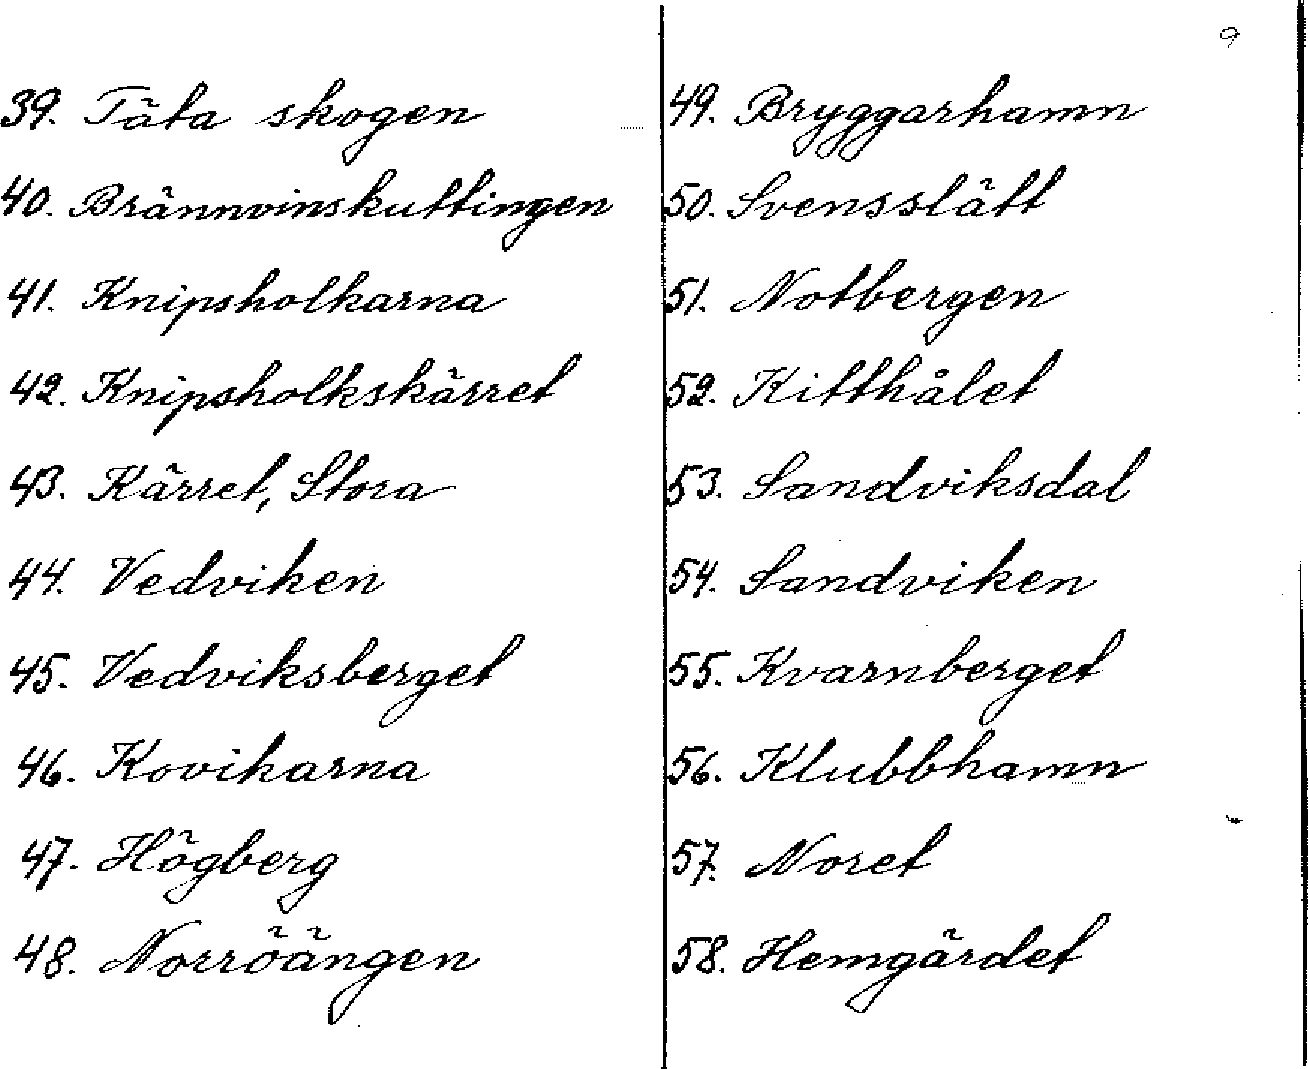 9
39. Täta skogen
40. Brännvinskuttingen
41. Knipsholkarna
42. Knipsholkskärret
43. Kärret, Stora
44. Vedviken
45. Vedviksberget
46. Kovikarna
47. Högberg
48. Norröängen
49. Bryggarhamn
50. Svensslätt
51. Notbergen
52. Kitthålet
53. Sandviksdal
54. Sandviken
55. Kvarnberget
56. Klubbhamn
57. Noret
58. Hemgärdet